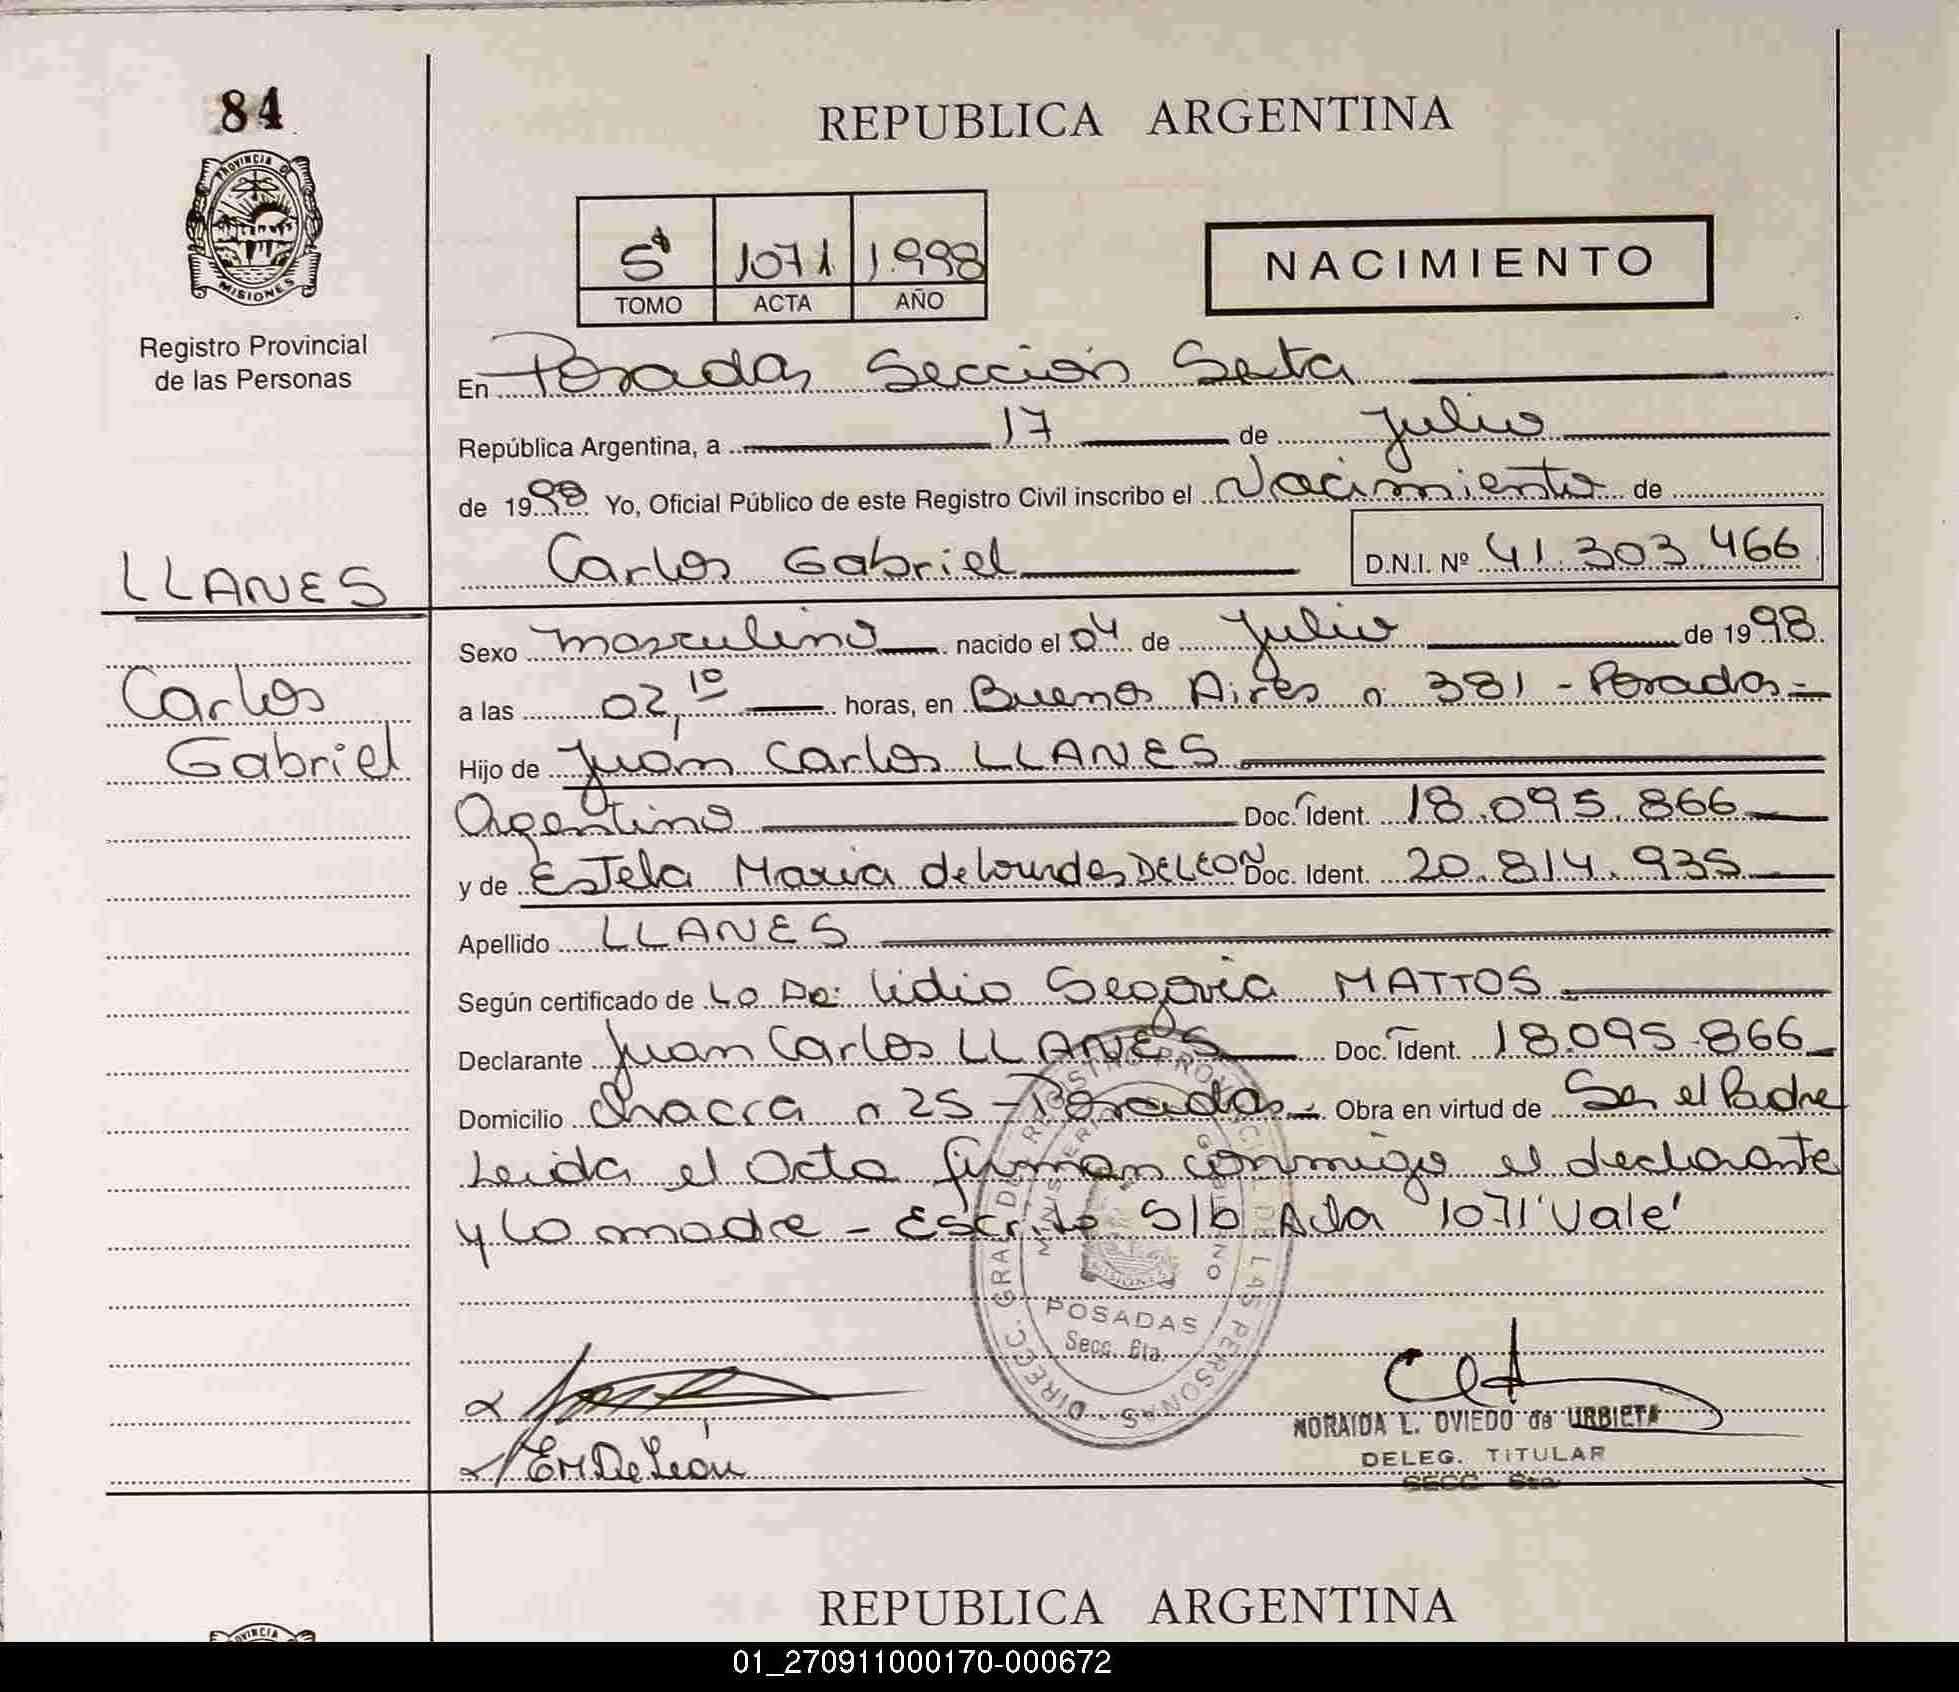 84
PROVINCIA DE
MISIONES
Registro Provincial
de las Personas
LLANES
Carlos
Gabriel
REPUBLICA ARGENTINA
5º 1071 1.998
TOMO ACTA AÑO
NACIMIENTO
En Posadas Sección Sexta
República Argentina, a 17 de Julio
de 1998 Yo, Oficial Público de este Registro Civil inscribo el Nacimiento de
Carlos Gabriel D.N.I. Nº 41.303.466
Sexo masculino nacido el 04 de Julio de 1998
a las 02,10 horas, en Buenos Aires n 381 - Posadas -
Hijo de Juan Carlos LLANES
Argentino Doc. Ident. 18.095.866
y de Estela Maria de Lourdes DELEON Doc. Ident. 20.814.935
Apellido LLANES
Según certificado de La Dra: Lidia Segovia MATTOS
Declarante Juan Carlos LLANES Doc. Ident. 18.095.866
Domicilio Chacra n 25 - Posadas - Obra en virtud de Ser el Padre
Leida el Acta firman conmigo el declarante
y la madre - Escrito S/b Acta '1071' Vale'
DIRECC. GRAL. DE REGISTRO PROVINCIAL DE LAS PERSONAS
MINISTERIO GOBIERNO
MISIONES
POSADAS
Secc. 6ta.
EM De León
NORAIDA L. OVIEDO de URBIETA
DELEG. TITULAR
SECC 6ta
REPUBLICA ARGENTINA
01_270911000170-000672